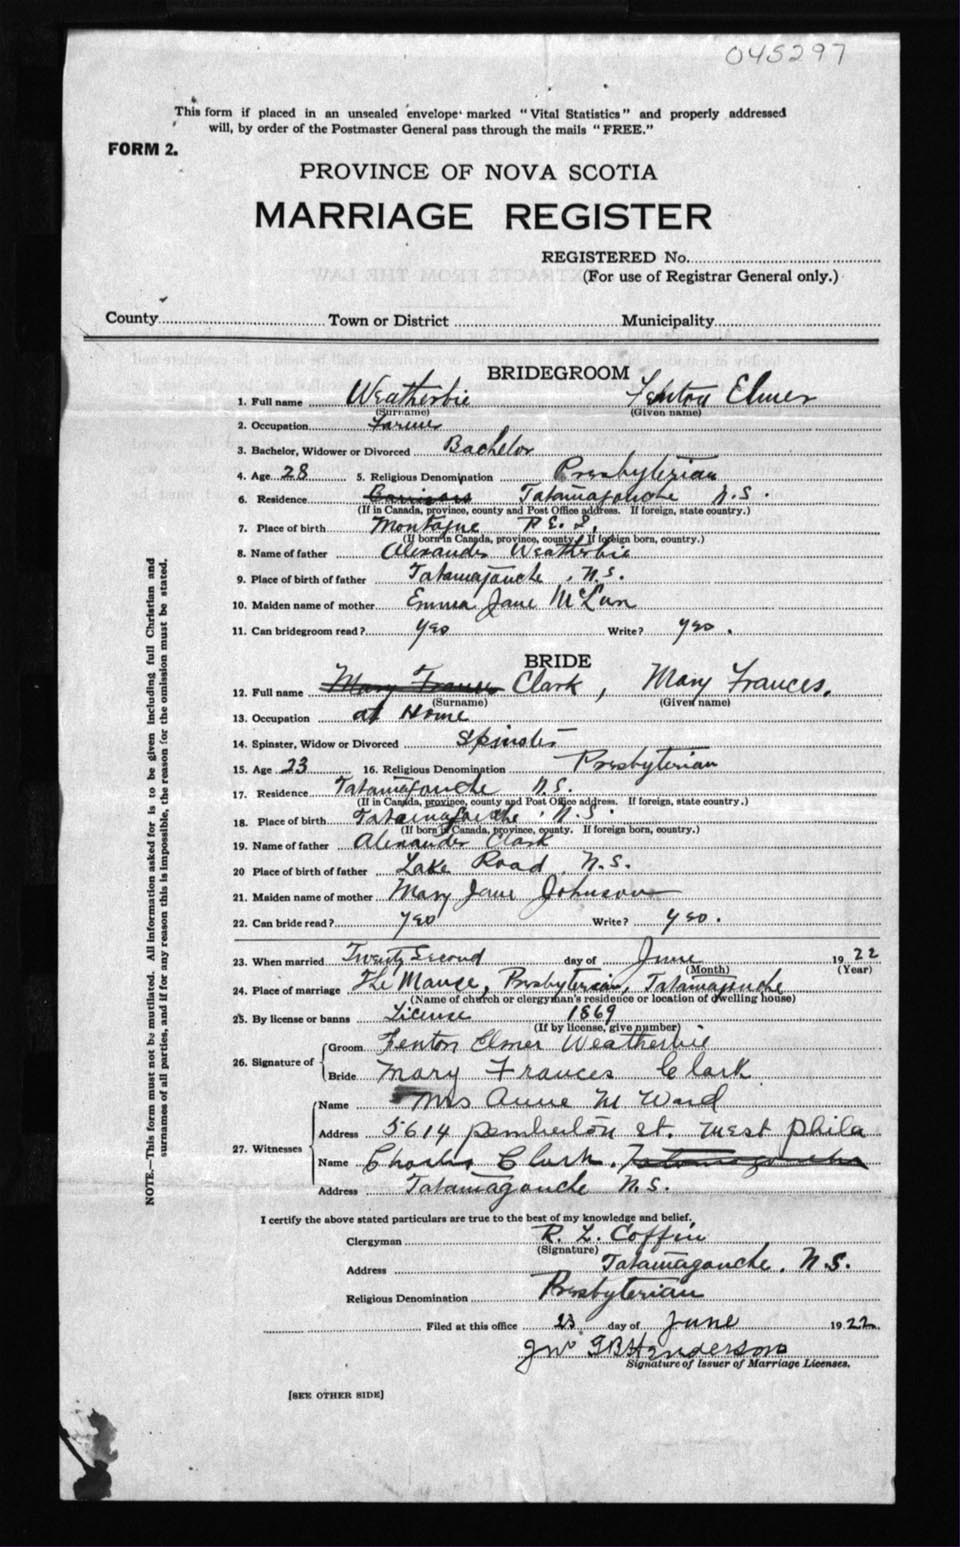 045297
This form if placed in an unsealed envelope marked "Vital Statistics" and properly addressed
will, by order of the Postmaster General pass through the mails "FREE."
FORM 2.
PROVINCE OF NOVA SCOTIA
MARRIAGE REGISTER
REGISTERED No.
(For use of Registrar General only.)
County Town or District Municipality
BRIDEGROOM
1. Full name Weatherbie Fenton Elmer
(Surname) (Given name)
2. Occupation Farmer
3. Bachelor, Widower or Divorced Bachelor
4. Age 28 5. Religious Denomination Presbyterian
6. Residence Tatamagouche N.S.
(If in Canada, province, county and Post Office address. If foreign, state country.)
7. Place of birth Montague P.E.I.
(If born in Canada, province, county. If foreign born, country.)
8. Name of father Alexander Weatherbie
9. Place of birth of father Tatamagouche, N.S.
10. Maiden name of mother Emma Jane
11. Can bridegroom read? yes Write? yes.
BRIDE
12. Full name Mary Frances Clark, Mary Frances.
(Surname) (Given name)
13. Occupation at Home
14. Spinster, Widow or Divorced Spinster
15. Age 23 16. Religious Denomination Presbyterian
17. Residence Tatamagouche N.S.
(If in Canada, province, county and Post Office address. If foreign, state country.)
18. Place of birth Tatamagouche, N.S.
(If born in Canada, province, county. If foreign born, country.)
19. Name of father Alexander Clark
20 Place of birth of father Lake Road, N.S.
21. Maiden name of mother Mary Jane Johnson
22. Can bride read? yes Write? yes.
23. When married Twenty Second day of June 1922
(Month) (Year)
24. Place of marriage The Manse, Presbyterian, Tatamagouche
(Name of church or clergyman's residence or location of dwelling house)
25. By license or banns License 1869
(If by license, give number)
26. Signature of Groom Fenton Elmer Weatherbie
Bride Mary Frances Clark
27. Witnesses Name Mrs Anne M Ward
Address 5614 Pemberton St. West Phila
Name Charles Clark, Tatamagouche
Address Tatamagouche N.S.
I certify the above stated particulars are true to the best of my knowledge and belief,
Clergyman R. L. Coffin
(Signature)
Address Tatamagouche, N.S.
Religious Denomination Presbyterian
Filed at this office 23 day of June 1922
Jno G B Henderson
Signature of Issuer of Marriage Licenses.
[SEE OTHER SIDE]
NOTE.—This form must not be mutilated. All information asked for is to be given including full Christian and
surnames of all parties, and if for any reason this is impossible, the reason for the omission must be stated.